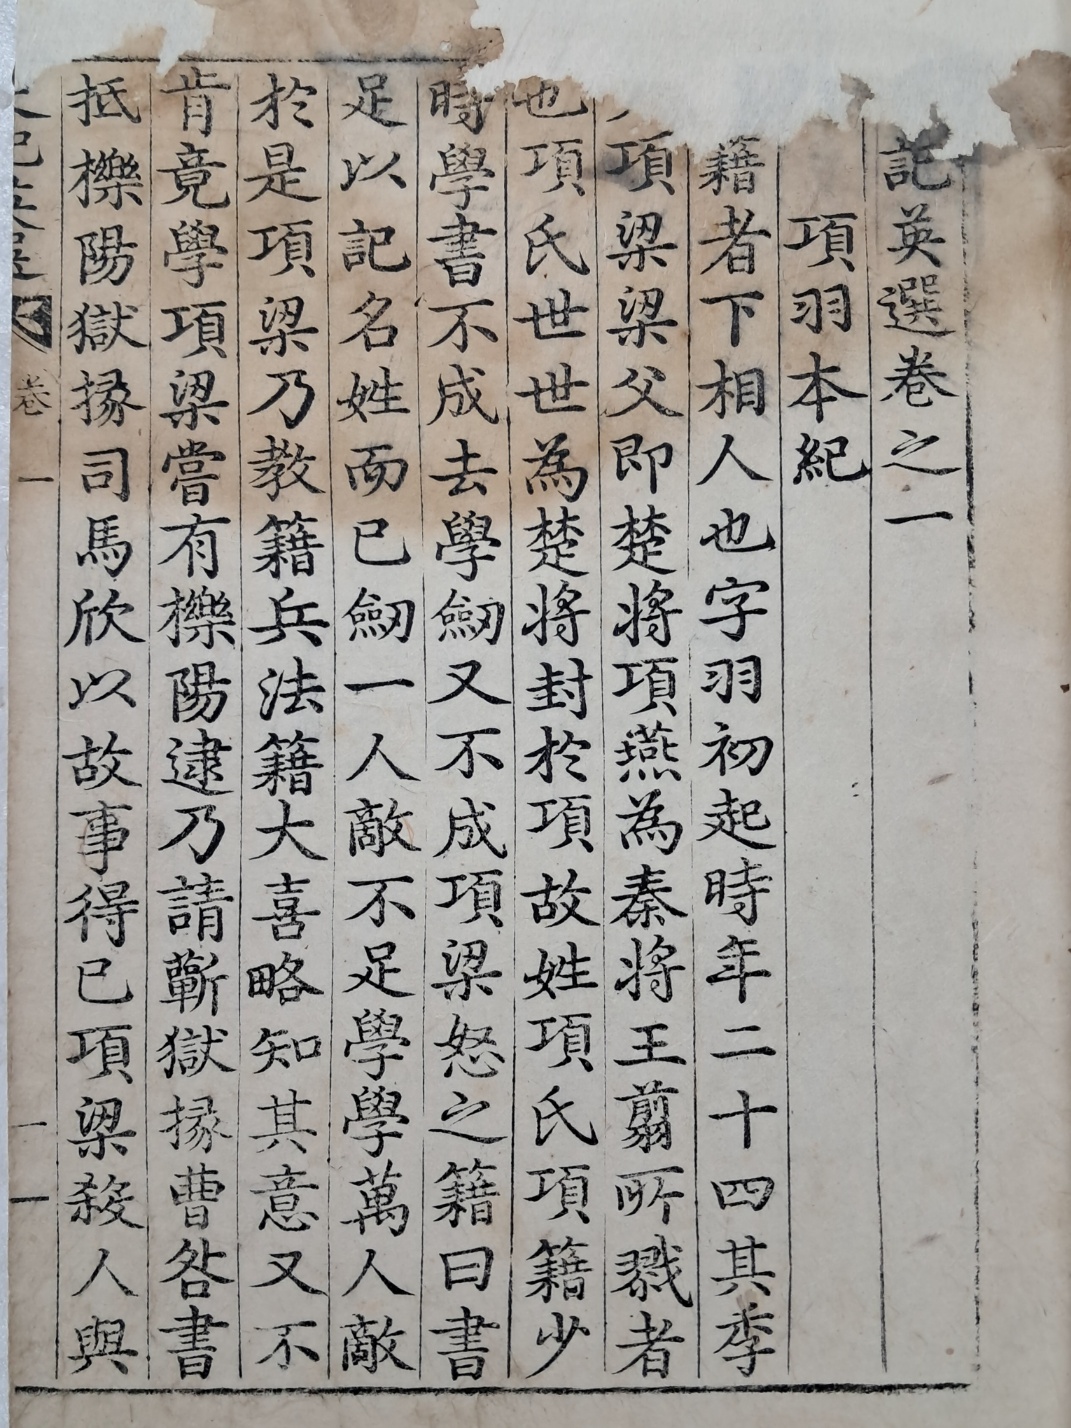 記英選卷之一
項羽本紀
籍者下相人也字羽初起時年二十四其季
項梁梁父即楚將項燕為秦將王翦所戮者
也項氏世世為楚將封於項故姓項氏項籍少
時學書不成去學劒又不成項梁怒之籍曰書
足以記名姓而已劒一人敵不足學學萬人敵
於是項梁乃教籍兵法籍大喜略知其意又不
肯竟學項梁嘗有櫟陽逮乃請蘄獄掾曹咎書
抵櫟陽獄掾司馬欣以故事得已項梁殺人與
卷一